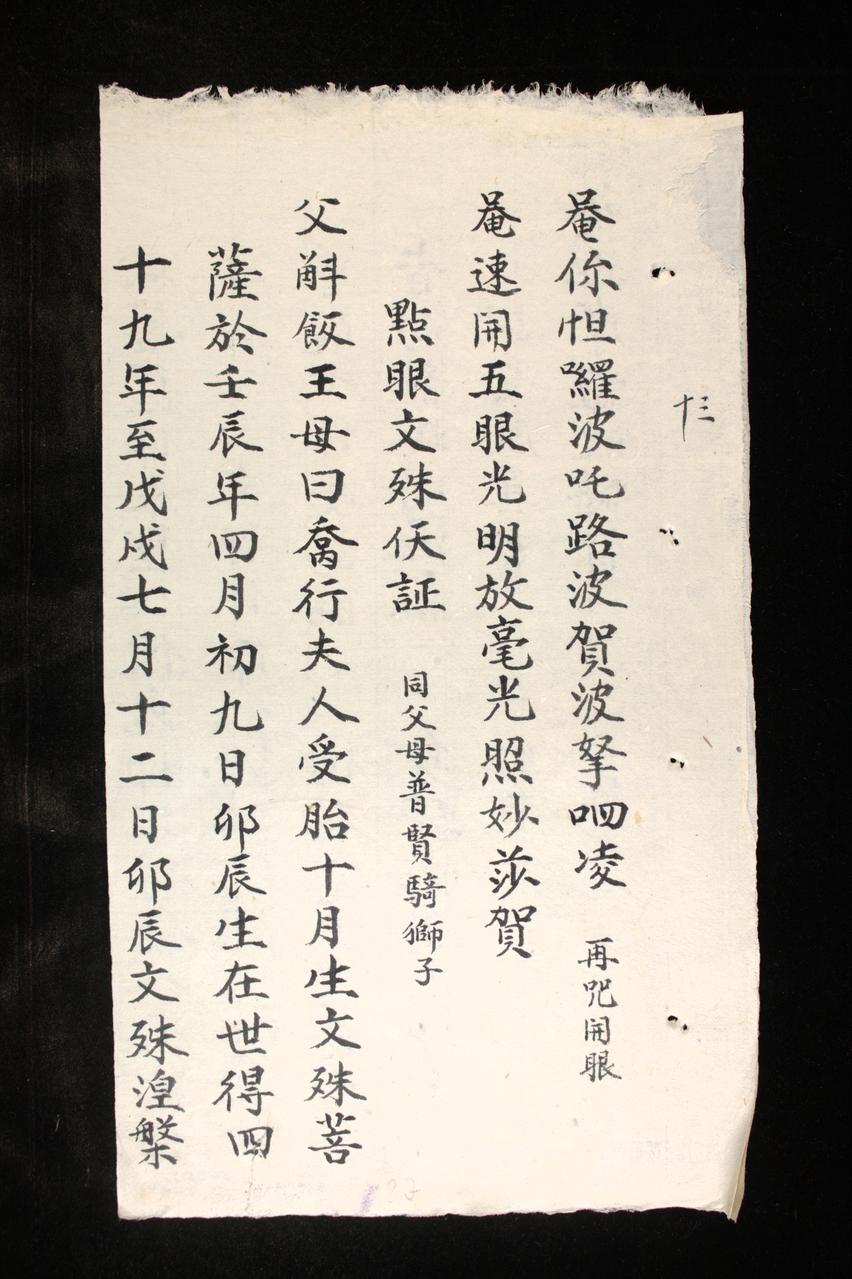 十三
菴你怛囉波吒路波賀波拏呬凌 再咒開眼
菴速開五眼光明放毫光照妙莎賀
點眼文殊仸証 同父母普賢騎獅子
父斛飯王母曰喬行夫人受胎十月生文殊菩
薩於壬辰年四月初九日卯辰生在世得四
十九年至戊戌七月十二日卯辰文殊湼槃